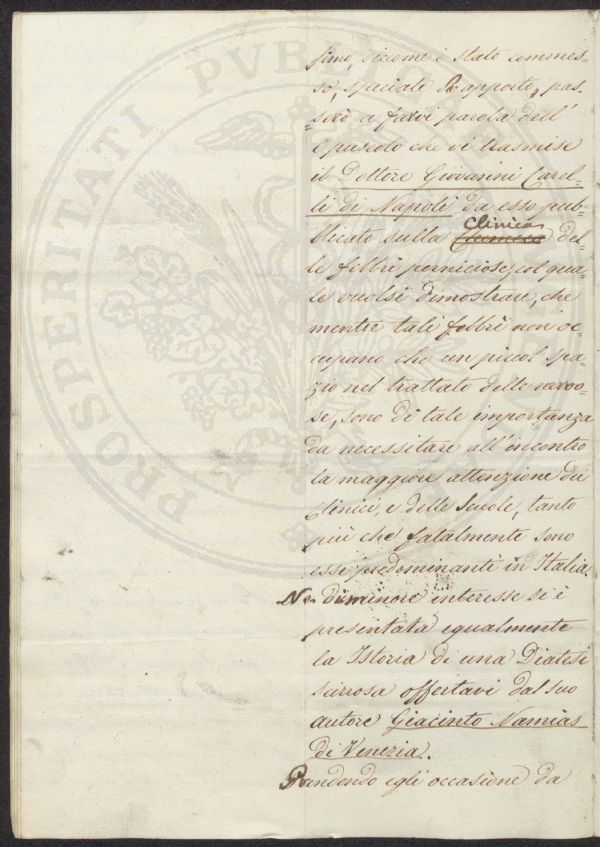 simo, siccome è stato commes=
so, speciale Rapporto, pas=
serò a farvi parola dell'
Opuscolo che vi trasmise
il Dottore Giovanni Carel=
li di Napoli da esso pub=
blicato sulla Clinica del=
le febbri perniciose, col qua=
le vuolsi dimostrare, che
mentre tali febbri non oc=
cupano che un piccol spa=
zio nel trattato delle
se, sono di tale importanza
da necessitare all'incontro
la maggiore attenzione dei
Clinici, e delle Scuole, tanto
più che fatalmente sono
esse predominanti in Italia.
Ne di minore interesse si è
presentata egualmente
la Istoria di una Diatesi
scirrosa offertavi dal suo
autore Giacinto Namias
di Venezia.
Prendendo egli occasione da
PROSPERITATI PVBLICAE